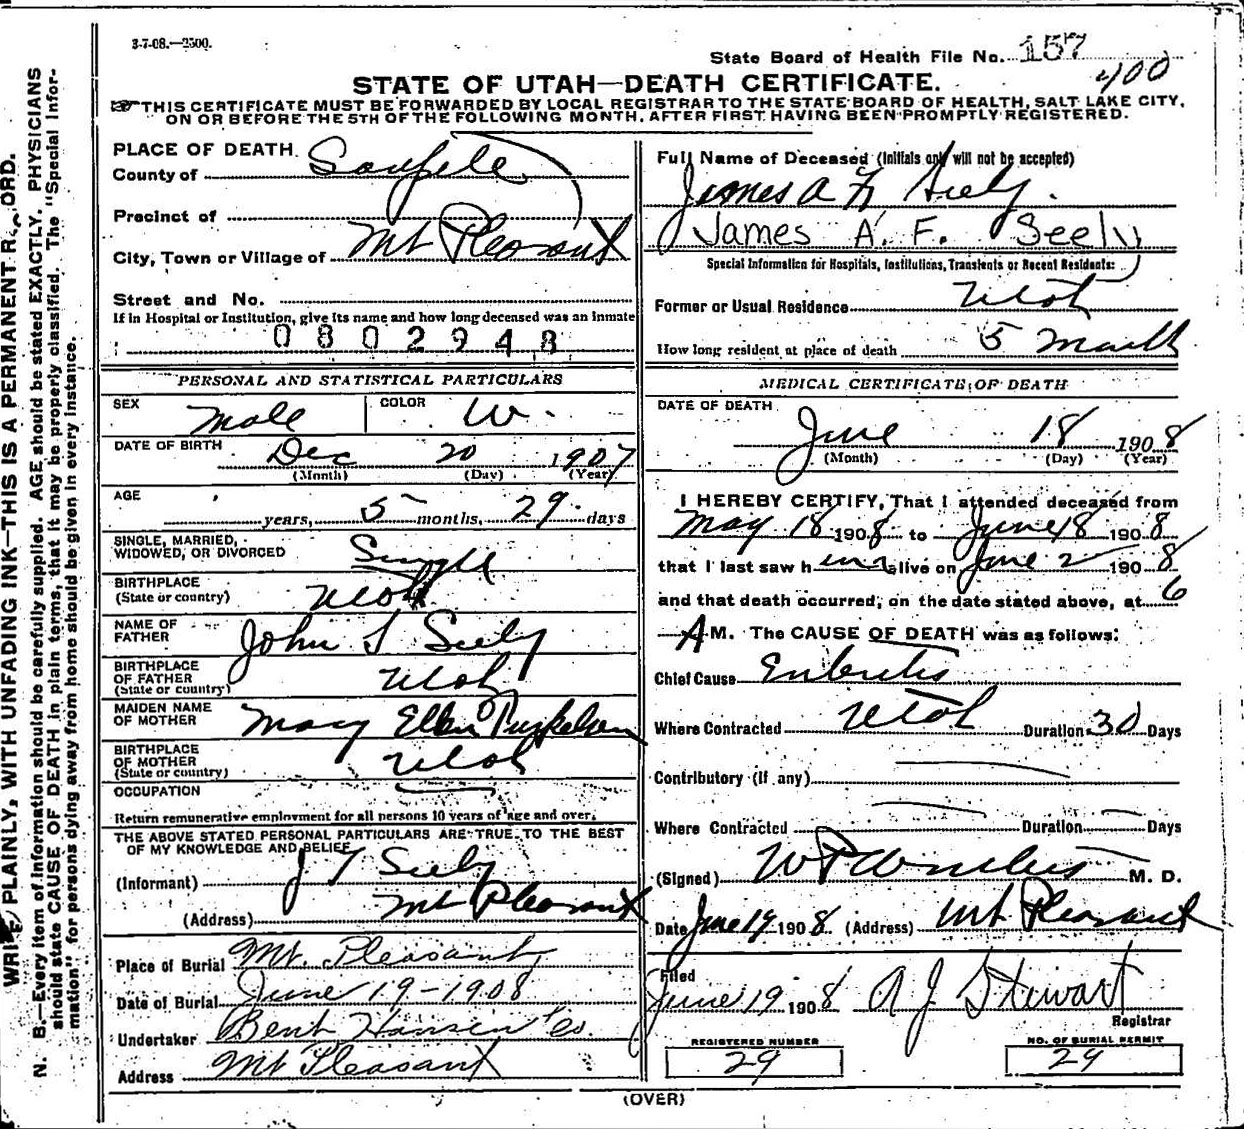 3-7-08.—2500.
State Board of Health File No. 157
400
STATE OF UTAH—DEATH CERTIFICATE.
THIS CERTIFICATE MUST BE FORWARDED BY LOCAL REGISTRAR TO THE STATE BOARD OF HEALTH, SALT LAKE CITY,
ON OR BEFORE THE 5TH OF THE FOLLOWING MONTH, AFTER FIRST HAVING BEEN PROMPTLY REGISTERED.
WRITE PLAINLY, WITH UNFADING INK—THIS IS A PERMANENT RECORD.
N. B.—Every item of information should be carefully supplied. AGE should be stated EXACTLY. PHYSICIANS
should state CAUSE OF DEATH in plain terms, that it may be properly classified. The "Special Infor-
mation" for persons dying away from home should be given in every instance.
PLACE OF DEATH
County of Sanpete
Precinct of
City, Town or Village of Mt Pleasant
Street and No.
If in Hospital or Institution, give its name and how long deceased was an inmate
0802948
PERSONAL AND STATISTICAL PARTICULARS
SEX Male COLOR W.
DATE OF BIRTH Dec 20 1907
(Month) (Day) (Year)
AGE
years, 5 months, 29 days
SINGLE, MARRIED,
WIDOWED, OR DIVORCED Single
BIRTHPLACE
(State or country) Utah
NAME OF
FATHER John Seely
BIRTHPLACE
OF FATHER
(State or country) Utah
MAIDEN NAME
OF MOTHER Mary Ellen
BIRTHPLACE
OF MOTHER
(State or country) Utah
OCCUPATION
Return remunerative employment for all persons 10 years of age and over.
THE ABOVE STATED PERSONAL PARTICULARS ARE TRUE TO THE BEST
OF MY KNOWLEDGE AND BELIEF
(Informant) J Seely
(Address) Mt Pleasant
Place of Burial Mt. Pleasant
Date of Burial June 19-1908
Undertaker Bent Hansen Co.
Address Mt Pleasant
Full Name of Deceased (Initials only will not be accepted)
James A F Seely.
James A. F. Seely
Special Information for Hospitals, Institutions, Transients or Recent Residents:
Former or Usual Residence Utah
How long resident at place of death 5 Month
MEDICAL CERTIFICATE OF DEATH
DATE OF DEATH
June 18 1908
(Month) (Day) (Year)
I HEREBY CERTIFY, That I attended deceased from
May 18 1908 to June 18 1908
that I last saw him alive on June 2 1908
and that death occurred, on the date stated above, at 6
A M. The CAUSE OF DEATH was as follows:
Chief Cause
Where Contracted Utah Duration 30 Days
Contributory (if any)
Where Contracted Duration Days
(Signed) M. D.
Date June 19 1908 (Address) Mt Pleasant
Filed
June 19 1908 A J Stewart
Registrar
REGISTERED NUMBER
29
NO. OF BURIAL PERMIT
29
(OVER)